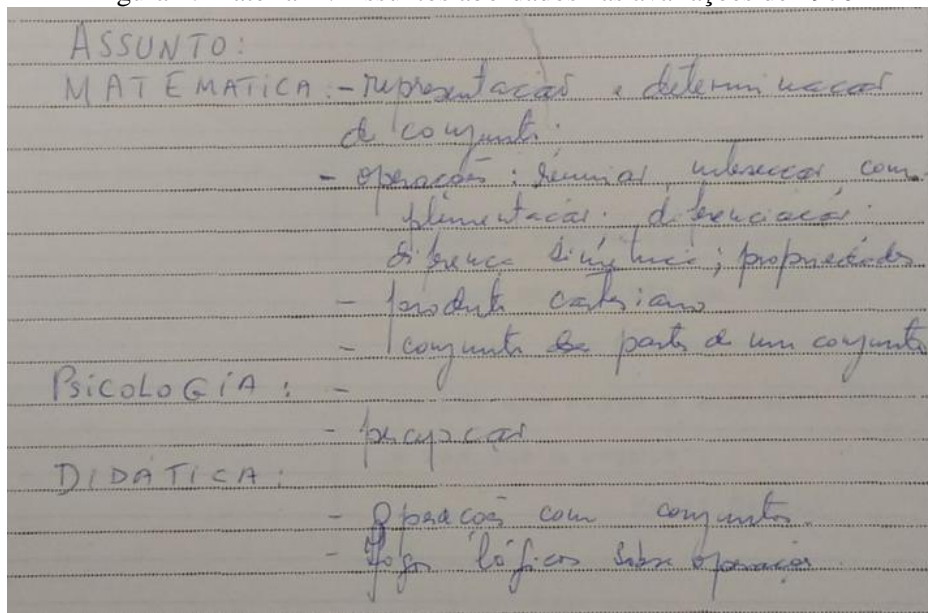 ASSUNTO:
MATEMATICA: - representação e determinação
de conjunto.
- operações: reunião, intersecção, com-
plementação. diferenciação.
diferença simétrica; propriedades
- produto cartesiano
- conjunto das partes de um conjunto
PSICOLOGÍA: -
- percepção
DIDÁTICA:
- Operações com conjuntos.
- Jogos lógicos sobre operações.